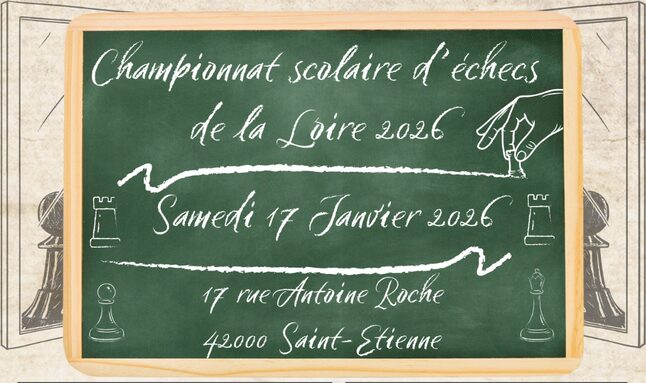 Championnat scolaire d'échecs
de la Loire 2026
Samedi 17 Janvier 2026
17 rue Antoine Roche
42000 Saint-Etienne